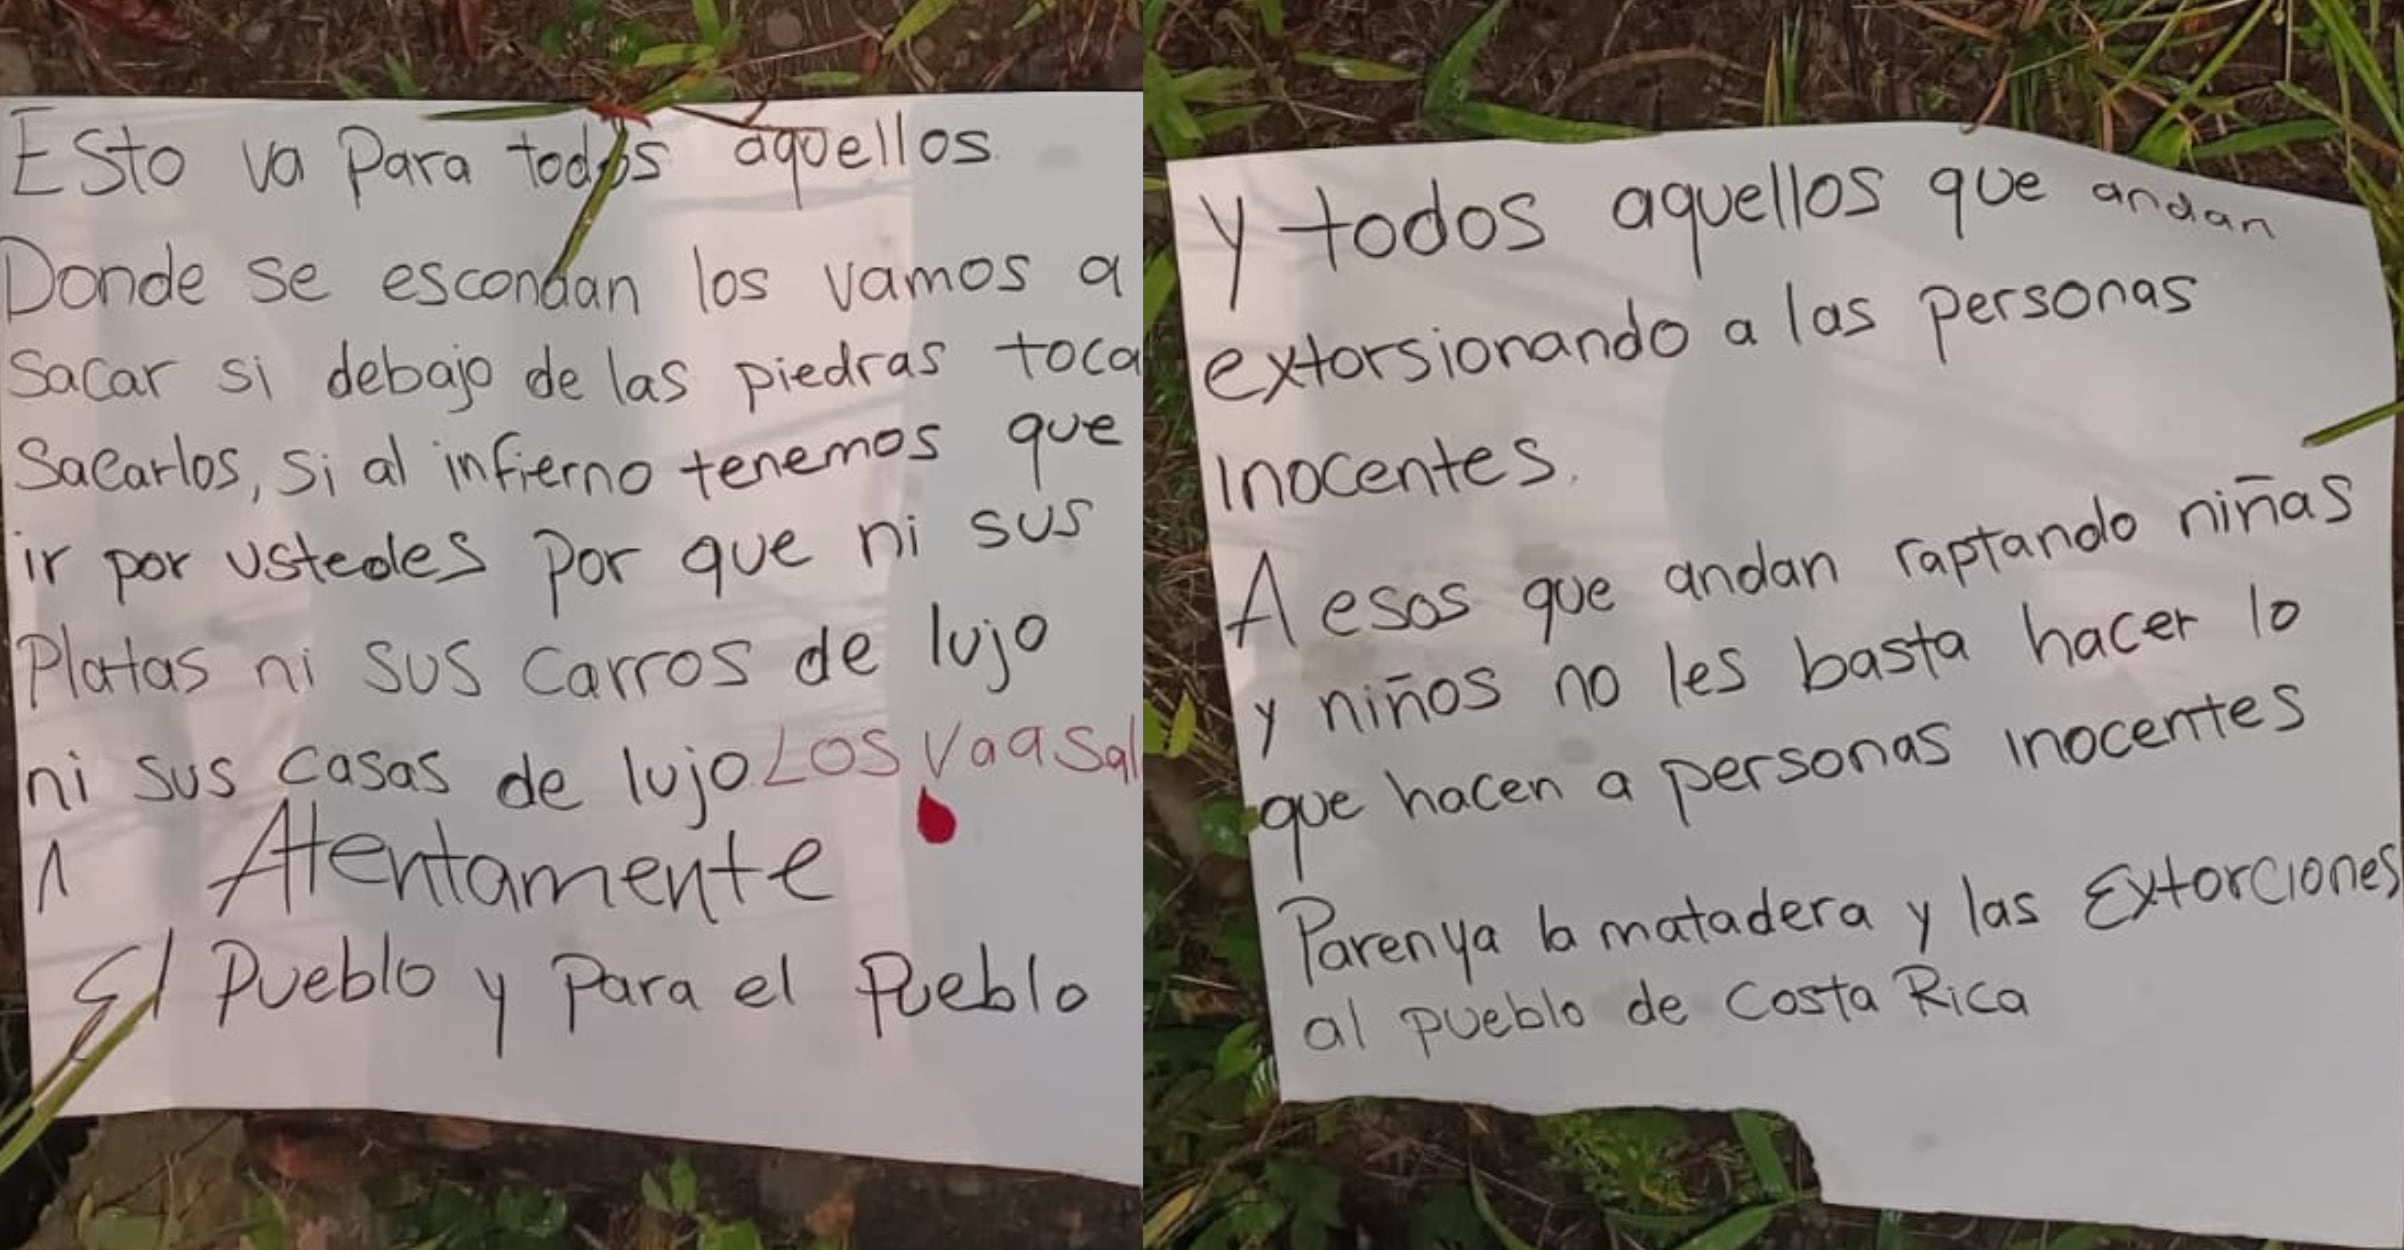 Esto va Para todos aquellos
Donde se escondan los vamos a
Sacar si debajo de las piedras toca
Sacarlos, Si al infierno tenemos que
ir por ustedes Por que ni sus
Platas ni sus carros de lujo
ni sus casas de lujo. Los Va a Sal
Atentamente
El Pueblo y Para el Pueblo
y todos aquellos que andan
extorsionando a las personas
inocentes.
A esos que andan raptando niñas
y niños no les basta hacer lo
que hacen a personas inocentes
Paren ya la matadera y las Extorciones
al pueblo de Costa Rica